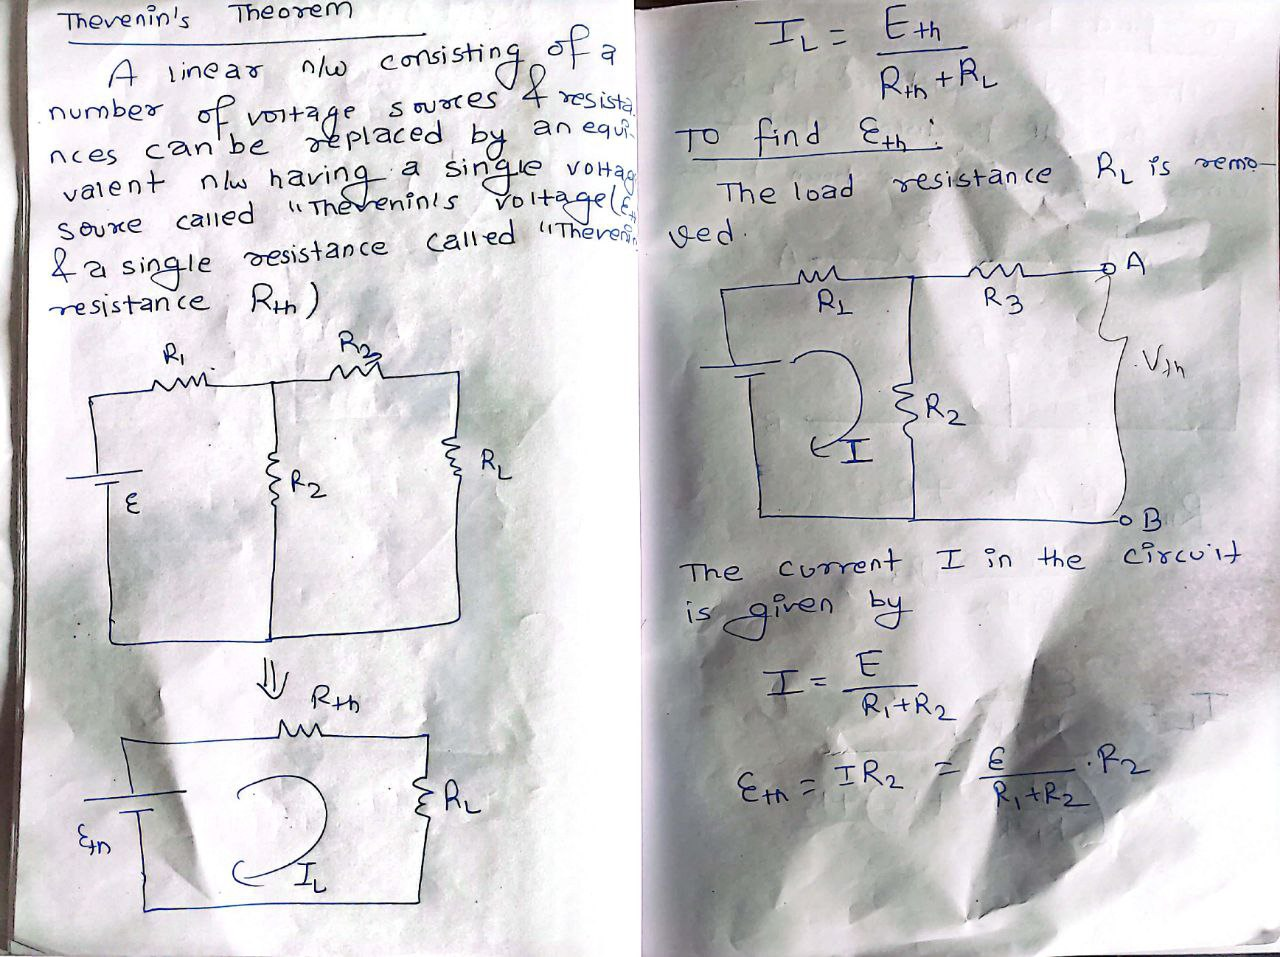 Thevenin's Theorem
A linear n/w consisting of a
number of voltage sources & resista
nces can be replaced by an equi-
valent n/w having a single voltag
source called "Thevenin's voltage(Eth
& a single resistance called "Thevenin
resistance Rth)
R1
R3
R2
RL
ε
⇓
Rth
RL
Eth
IL
IL = Eth
Rth + RL
To find Eth :
The load resistance RL is remo-
ved.
A
R1
R3
Vth
R2
I
B
The current I in the circuit
is given by
I = E
R1+R2
Eth = IR2 = E . R2
R1+R2